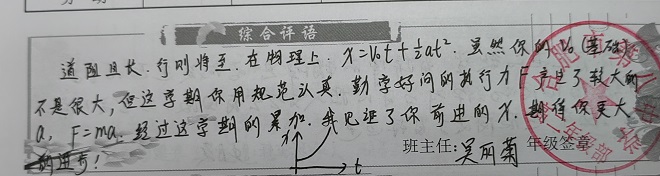 综合评语
道阻且长.行则将至.在物理上.x=v₀t+½at².虽然你的v₀(基础)
不是很大,但这学期你用规范认真.勤学好问的执行力F产生了较大的
a,F=ma.经过这学期的累加.我见证了你前进的x.期待你更大
的进步!
x
t
班主任:吴丽菊 年级签章